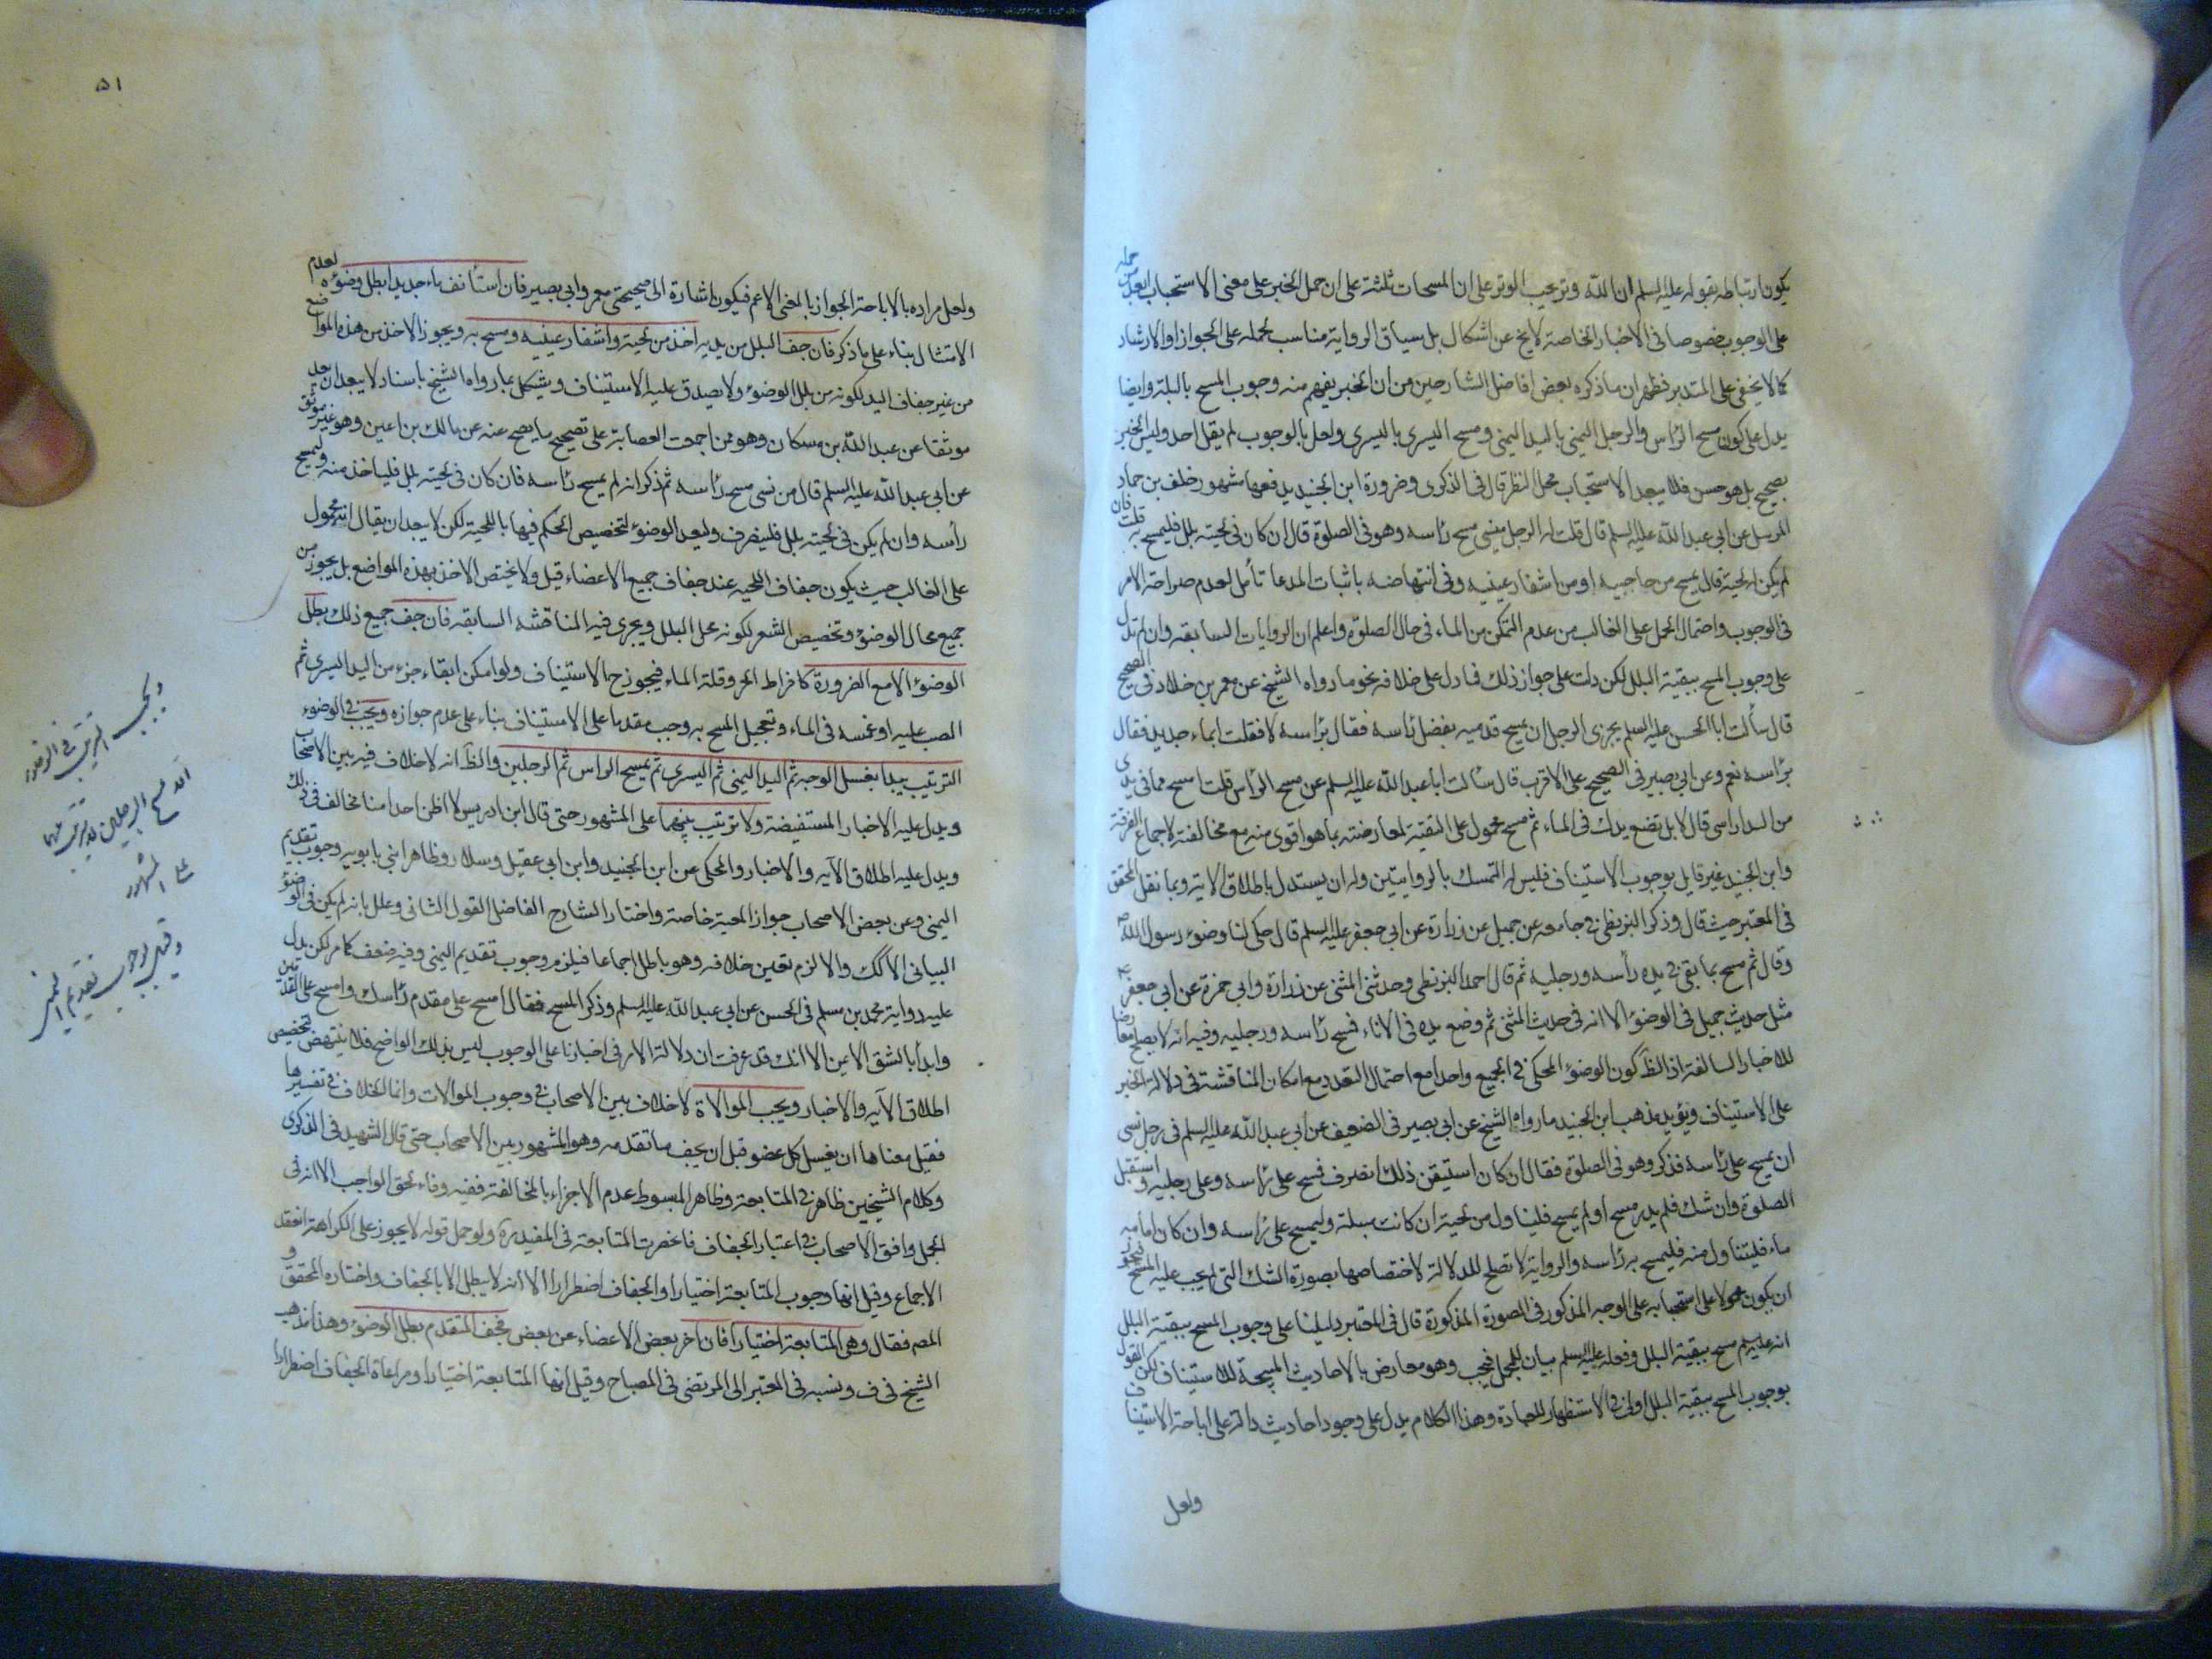 يكون ارتباطه بقوله عليه السلم ان الله وتر يحب الوتر على ان المسحات ثلثة على ان حمل الخبر على معنى الاستحباب ابعد من حمله
على الوجوب خصوصا في الاخبار الخاصة لا يخ عن اشكال بل سياق الرواية مناسب لحمله على الجواز او الارشاد
كما لا يخفى على المتدبر فظهر ان ما ذكره بعض افاضل الشارحين من ان الخبر يفهم منه وجوب المسح بالبلة وايضا
يدل على كون مسح الرأس والرجل اليمنى باليد اليمنى ومسح اليسرى باليسرى ولعل بالوجوب لم يقل احد وليس الخبر
بصحيح بل هو حسن فلا يبعد الاستحباب محل النظر قال في الذكرى وضرورة ابن الجنيد يدفعها مشهور خلف بن حماد
المرسل عن ابي عبد الله عليه السلم قال قلت له الرجل ينسى مسح رأسه وهو في الصلوة قال ان كان في لحيته بلل فليمسح به قلت فان
لم يكن له لحية قال يمسح من حاجبيه او من اشفار عينيه وفي انتهاضه باثبات المدعا تأمل لعدم صراحة الامر
في الوجوب واحتمال الحمل على الغالب من عدم التمكن من الماء في حال الصلوة واعلم ان الروايات السابقة وان لم تدل
على وجوب المسح ببقية البلل لكن دلت على جواز ذلك فما دل على خلافه نحو ما رواه الشيخ عن معمر بن خلاد في الصحيح
قال سألت ابا الحسن عليه السلم يجزى الرجل ان يمسح قدميه بفضل رأسه فقال برأسه لا فقلت ابماء جديد فقال
برأسه نعم وعن ابي بصير في الصحيح على الاقرب قال سألت ابا عبد الله عليه السلم عن مسح الرأس قلت امسح مما في يدى
من الندا رأسى قال لا بل تضع يدك في الماء ثم تمسح محمول على التقية لمعارضته بما هو اقوى منه مع مخالفته لاجماع الفرقة
وابن الجنيد غير قايل بوجوب الاستيناف فليس له التمسك بالروايتين وله ان يستدل باطلاق الاية وبما نقل المحقق
في المعتبر حيث قال وذكر البزنطى في جامعه عن جميل عن زرارة عن ابي جعفر عليه السلم قال حكى لنا وضوء رسول الله ص
وقال ثم مسح بما بقى في يده رأسه ورجليه ثم قال احمد البزنطى وحدثنى المثنى عن زرارة وابي حمزة عن ابي جعفر ع
مثل حديث جميل في الوضوء الا انه في حديث المثنى ثم وضع يده في الاناء فمسح رأسه ورجليه وفيه انه لا يصلح معارضا
للاخبار السالفة اذ الظ كون الوضوء المحكى في الجميع واحدا مع احتمال التعدد مع امكان المناقشة في دلالة الخبر
على الاستيناف ويؤيد مذهب ابن الجنيد ما رواه الشيخ عن ابي بصير في الضعيف عن ابي عبد الله عليه السلم في رجل نسى
ان يمسح على رأسه فذكر وهو في الصلوة فقال ان كان استيقن ذلك انصرف فمسح على رأسه وعلى رجليه واستقبل
الصلوة وان شك فلم يدر مسح او لم يمسح فليتناول من لحيته ان كانت مبتلة وليمسح على رأسه وان كان امامه
ماء فليتناول منه فليمسح به رأسه والرواية لا تصلح للدلالة لاختصاصها بصورة الشك التى لا يجب عليه المسح فيجوز
ان يكون محمولا على استحبابه على الوجه المذكور في الصورة المذكورة قال في المعتبر دليلنا على وجوب المسح ببقية البلل
انه عليه السلم مسح ببقية البلل وفعله عليه السلم بيان للمجمل فيجب وهو معارض بالاحاديث المبيحة للاستيناف لكن القول
بوجوب المسح ببقية البلل اولى في الاستظهار للعبادة وهذا الكلام يدل على وجود احاديث دالة على اباحة الاستيناف
ولعل
۵۱
ولعل مراده بالاباحة الجواز بالمعنى الاعم فيكون اشارة الى صحيحتى معمر وابي بصير فان استأنف ماء جديدا بطل وضوئه لعدم
الامتثال بناء على ما ذكر فان جف البلل من يديه اخذ من لحيته واشفار عينيه ومسح به ويجوز الاخذ من هذه المواضع
من غير جفاف اليد لكونه من بلل الوضوء ولا يصدق عليه الاستيناف ويشكل بما رواه الشيخ باسناد لا يبعد ان يعد
موثقا عن عبد الله بن مسكان وهو ممن اجمعت العصابة على تصحيح ما يصح عنه عن مالك بن اعين وهو غير موثق
عن ابي عبد الله عليه السلم قال من نسى مسح رأسه ثم ذكر انه لم يمسح رأسه فان كان في لحيته بلل فلياخذ منه وليمسح
رأسه وان لم يكن في لحيته بلل فلينصرف وليعد الوضوء لتخصيص الحكم فيها باللحية لكن لا يبعد ان يقال انه محمول
على الغالب حيث يكون جفاف اللحيه عند جفاف جميع الاعضاء قيل ولا يختص الاخذ بهذه المواضع بل يجوز من
جميع محال الوضوء وتخصيص الشعر لكونه محل البلل ويجرى فيه المناقشه السابقه فان جف جميع ذلك بطل
الوضوء الا مع الضرورة كافراط الحر وقلة الماء فيجوز ح الاستيناف ولو امكن ابقاء جزء من اليد اليسرى ثم
الصب عليه او غمسه في الماء وتعجيل المسح به وجب مقدما على الاستيناف بناء على عدم جوازه ويجب في الوضوء
الترتيب يبدا بغسل الوجه ثم اليد اليمنى ثم اليسرى ثم يمسح الراس ثم الرجلين والظ انه لا خلاف فيه بين الاصحاب
ويدل عليه الاخبار المستفيضة ولا ترتيب بينهما على المشهور حتى قال ابن ادريس لا اظن احدا منا يخالف في ذلك
ويدل عليه اطلاق الآيه والاخبار والمحكى عن ابن الجنيد وابن ابي عقيل وسلار وظاهر ابني بابويه وجوب تقديم
اليمنى وعن بعض الاصحاب جواز المعية خاصة واختار الشارح الفاضل القول الثانى وعلل بانه لم يكن في الوضوء
البيانى الا كك والا لزم تعين خلافه وهو باطل اجماعا فيلزم وجوب تقديم اليمنى وفيه ضعف كما مر لكن يدل
عليه رواية محمد بن مسلم في الحسن عن ابي عبد الله عليه السلم وذكر المسح فقال امسح على مقدم رأسك وامسح على القدمين
وابدأ بالشق الايمن الا انك قد عرفت ان دلالة الامر في اخبارنا على الوجوب ليس بذلك الواضح فلا ينتهض لتخصيص
اطلاق الآيه والاخبار ويجب الموالاة لا خلاف بين الاصحاب في وجوب الموالات وانما الخلاف في تفسيرها
فقيل معناها ان يغسل كل عضو قبل ان يجف ما تقدمه وهو المشهور بين الاصحاب حتى قال الشهيد في الذكرى
وكلام الشيخين ظاهر في المتابعة وظاهر المبسوط عدم الاجزاء بالمخالفة ففيه وفاء لحق الواجب الا انه في
الجمل وافق الاصحاب في اعتبار الجفاف فانحصرت المتابعة في المفيد ره ولو حمل قوله لا يجوز على الكراهة انعقد
الاجماع وقيل انها وجوب المتابعة اختيارا والجفاف اضطرارا الا انه لا يبطل الا بالجفاف واختاره المحقق و
المص فقال وهى المتابعة اختيارا فان اخر بعض الاعضاء عن بعض فجف المتقدم بطل الوضوء وهذا مذهب
الشيخ في ف ونسبه في المعتبر الى المرتضى في المصباح وقيل انها المتابعة اختيارا ومراعاة الجفاف اضطرارا
ويجب الترتيب في الوضوء
مسح الرجلين لا ترتيب بينهما
على المشهور
وقيل بوجوب تقديم اليمنى